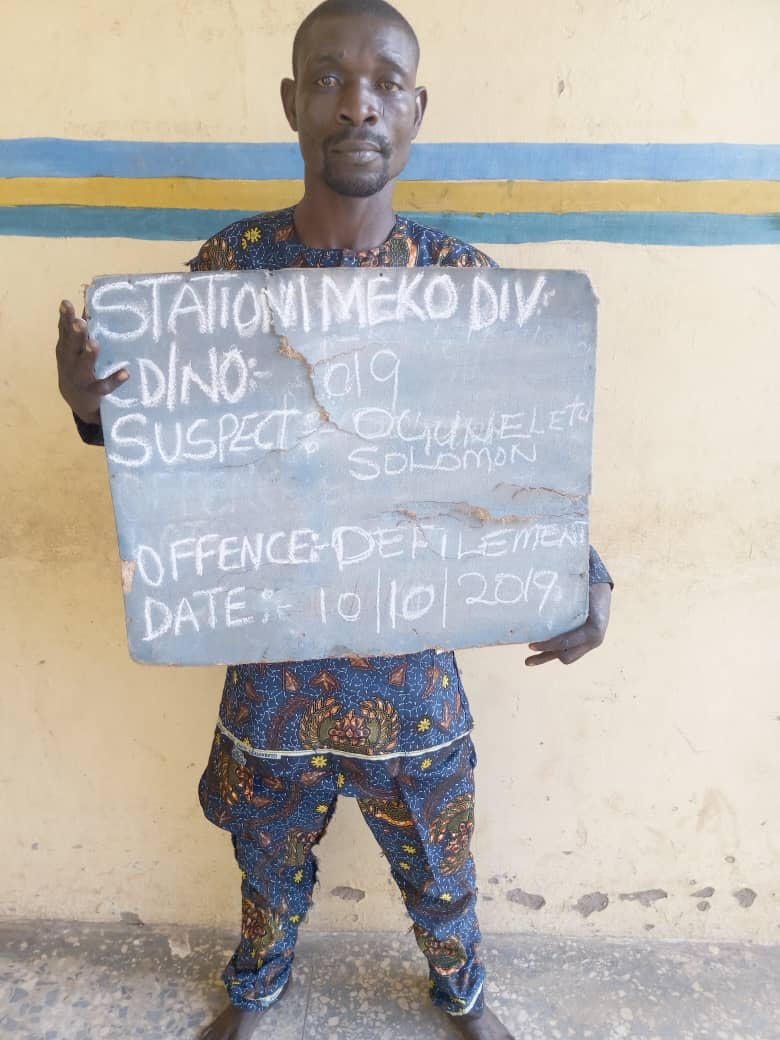 STATION IMEKO DIV:-
CD/NO:- 019
SUSPECT:- OGUNELETU
SOLOMON
OFFENCE:- DEFILEMENT
DATE:- 10/10/2019